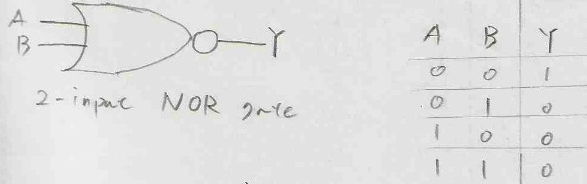 A
B
Y
2-input NOR gate
A B Y
0 0 1
0 1 0
1 0 0
1 1 0